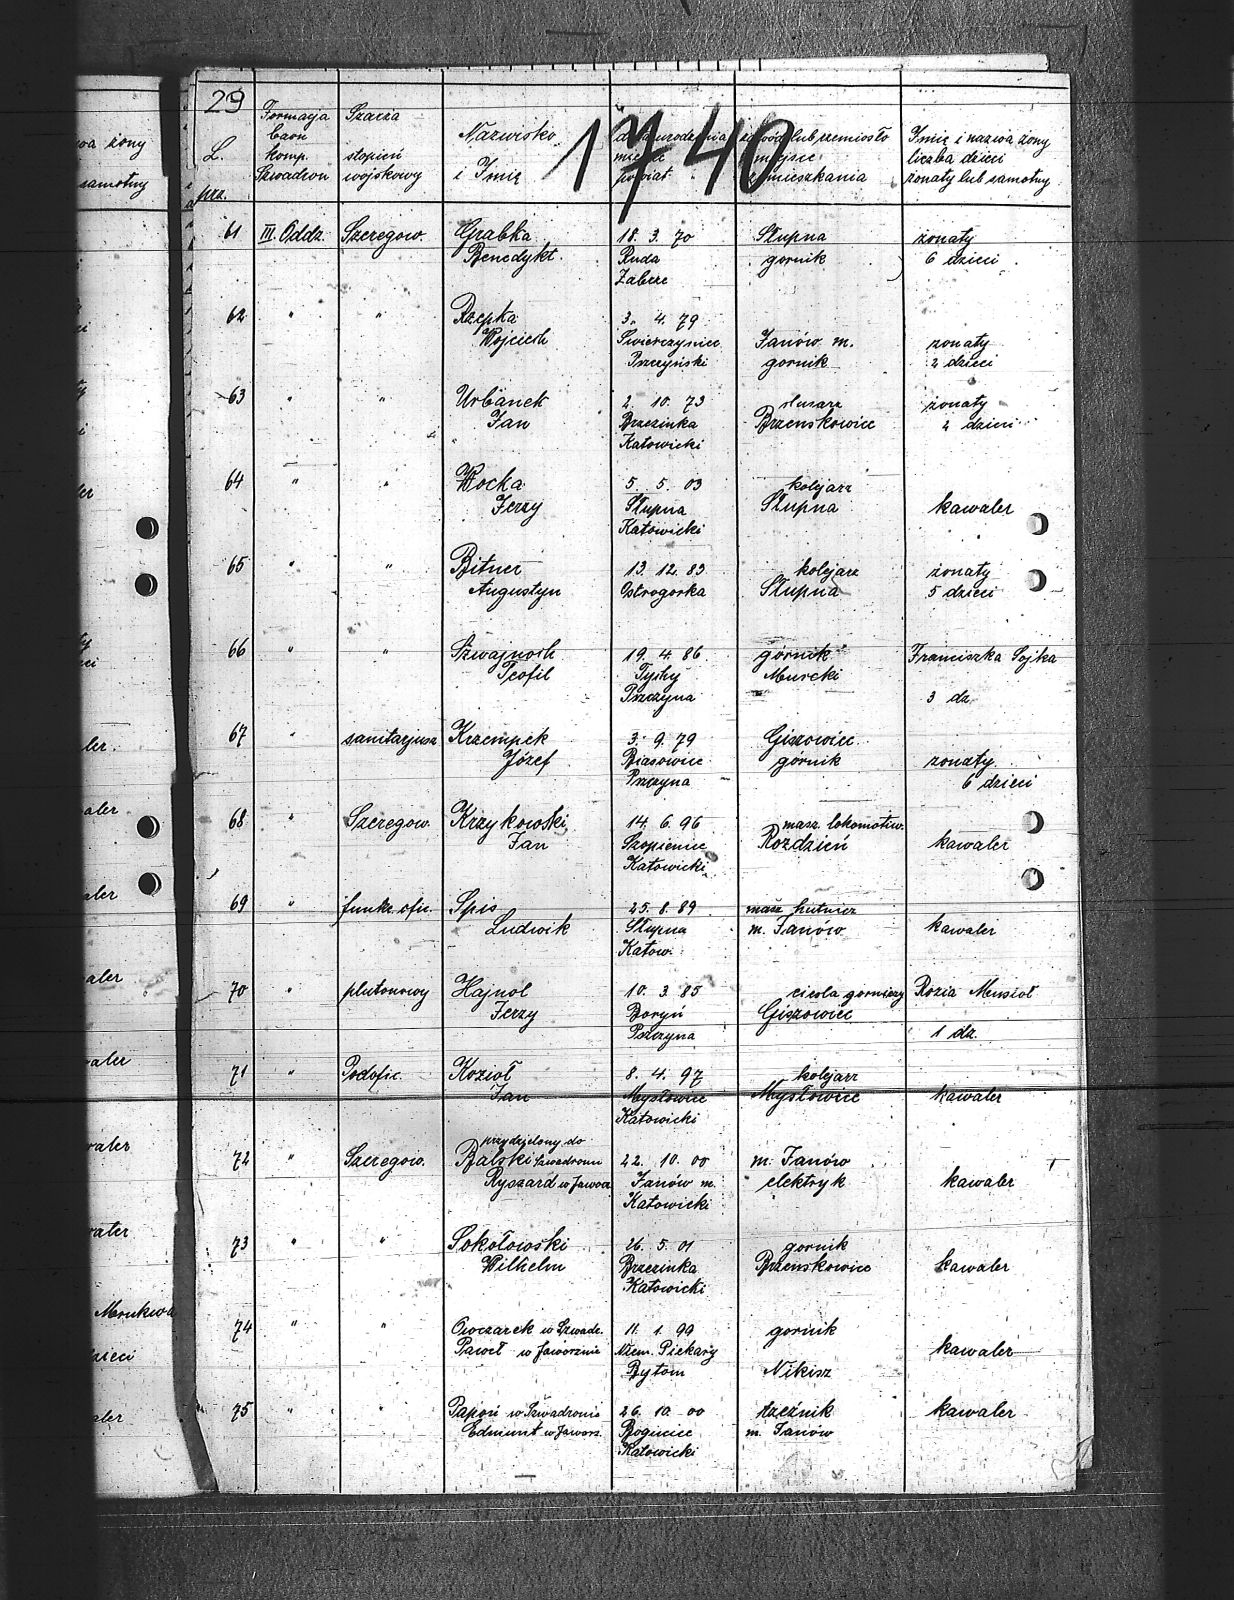 29
1740
L. prz.
Formacja baon komp. Szwadron
Szarża stopień wojskowy
Nazwisko i Imię
data urodzenia miejsce powiat
zawód lub rzemiosło miejsce zamieszkania
Imię i nazwa żony liczba dzieci żonaty lub samotny
61 III. Oddz. Szeregow. Grabka 18. 3. 70 Słupna żonaty
Benedykt. Ruda gornik 6 dzieci
Zabrze
62 " " Rzepka 3. 4. 79
Wojciech Swierczyniec Janów m. zonaty
Pszczyński gornik 2 dzieci
63 " " Urbanek 2. 10. 73 slusarz żonaty
Jan Brzezinka Brzenskowice 2 dzieci
Katowicki
64 " " Wocka 5. 5. 03 kolejarz
Jerzy Słupna Słupna kawaler
Katowicki
65 " " Bitner 13. 12. 83 kolejarz żonaty
Augustyn Ostrogorka Słupna 5 dzieci
66 " " Szwajnoch 19. 4. 86 górnik Franciszka Sojka
Teofil Tychy Murcki
Pszczyna 3 dz
67 " sanitarjusz Krzempek 3. 9. 79 Giszowiec
Józef Biasowice górnik zonaty
Pszczyna 6 dzieci
68 " Szeregow. Krzykowski 14. 6. 96 masz. lokomotiw.
Jan Szopienice Rozdzień kawaler
Katowicki
69 " funkc. ofic. Spis 25. 8. 89 masz hutnicz
Ludwik Słupna m. Janów kawaler
Katow.
70 " plutonowy Hajnol 10. 3. 85 ciesla gorniczy Rozia Musioł
Jerzy Boryń Giszowiec
Pszczyna 1 dz.
71 " Podofic. Kozioł 8. 4. 97 kolejarz
Jan Mysłowice Mysłowice kawaler
Katowicki
przydzielony do
72 " Szeregow. Balski Szwadronu 22. 10. 00 m. Janów
Ryszard w Jaworz Janów m. elektryk kawaler
Katowicki
73 " " Sokołowski 26. 5. 01 gornik
Wilhelm Brzezinka Brzenskowice kawaler
Katowicki
74 " " Owczarek w Szwadr. 11. 1. 99 gornik
Paweł w Jaworznie Niem. Piekary kawaler
Bytom Nikisz
75 " " Papoń w Szwadronie 26. 10. 00 rzeźnik kawaler
Edmunt w Jaworz. Bogucice m. Janów
Katowicki